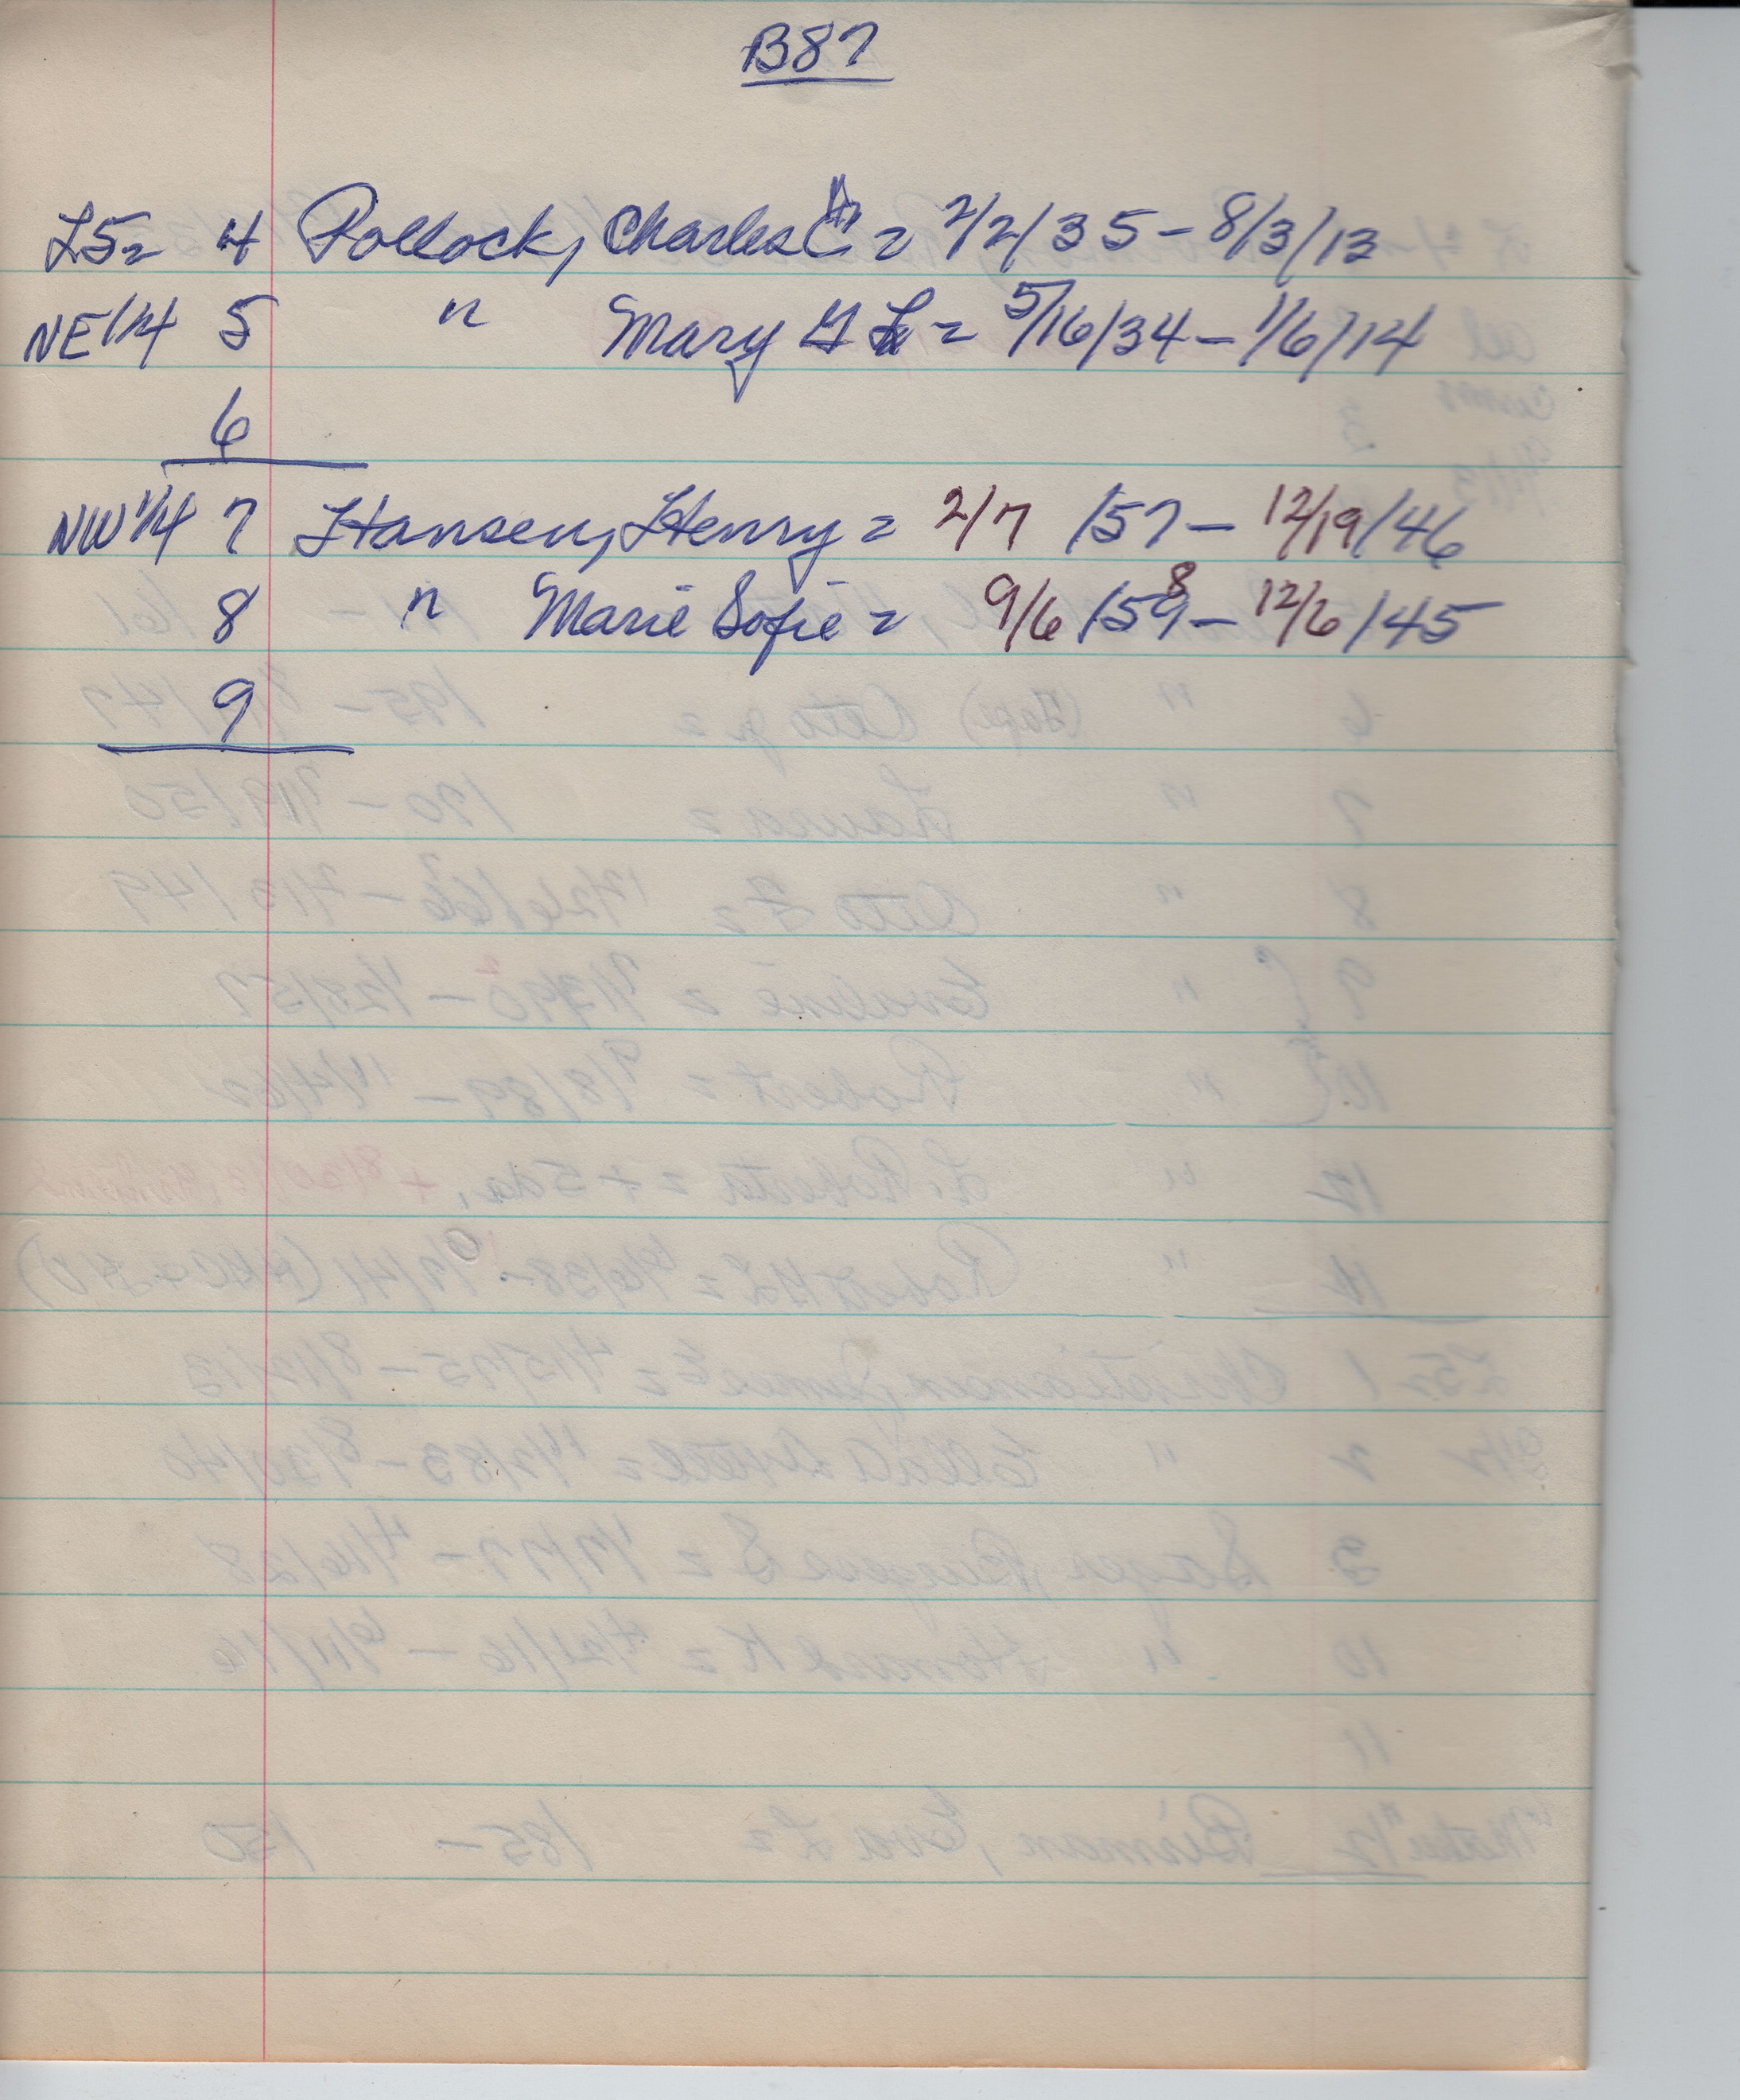 B87
L5= 4 Pollock, Charles = 2/2/35 - 8/3/13
NE1/4 5 " Mary = 5/16/34 - 1/6/14
6
NW1/4 7 Hansen, Henry = 2/7/57 - 12/19/46
8 " Marie Sofie = 9/6/58 - 12/6/45
9